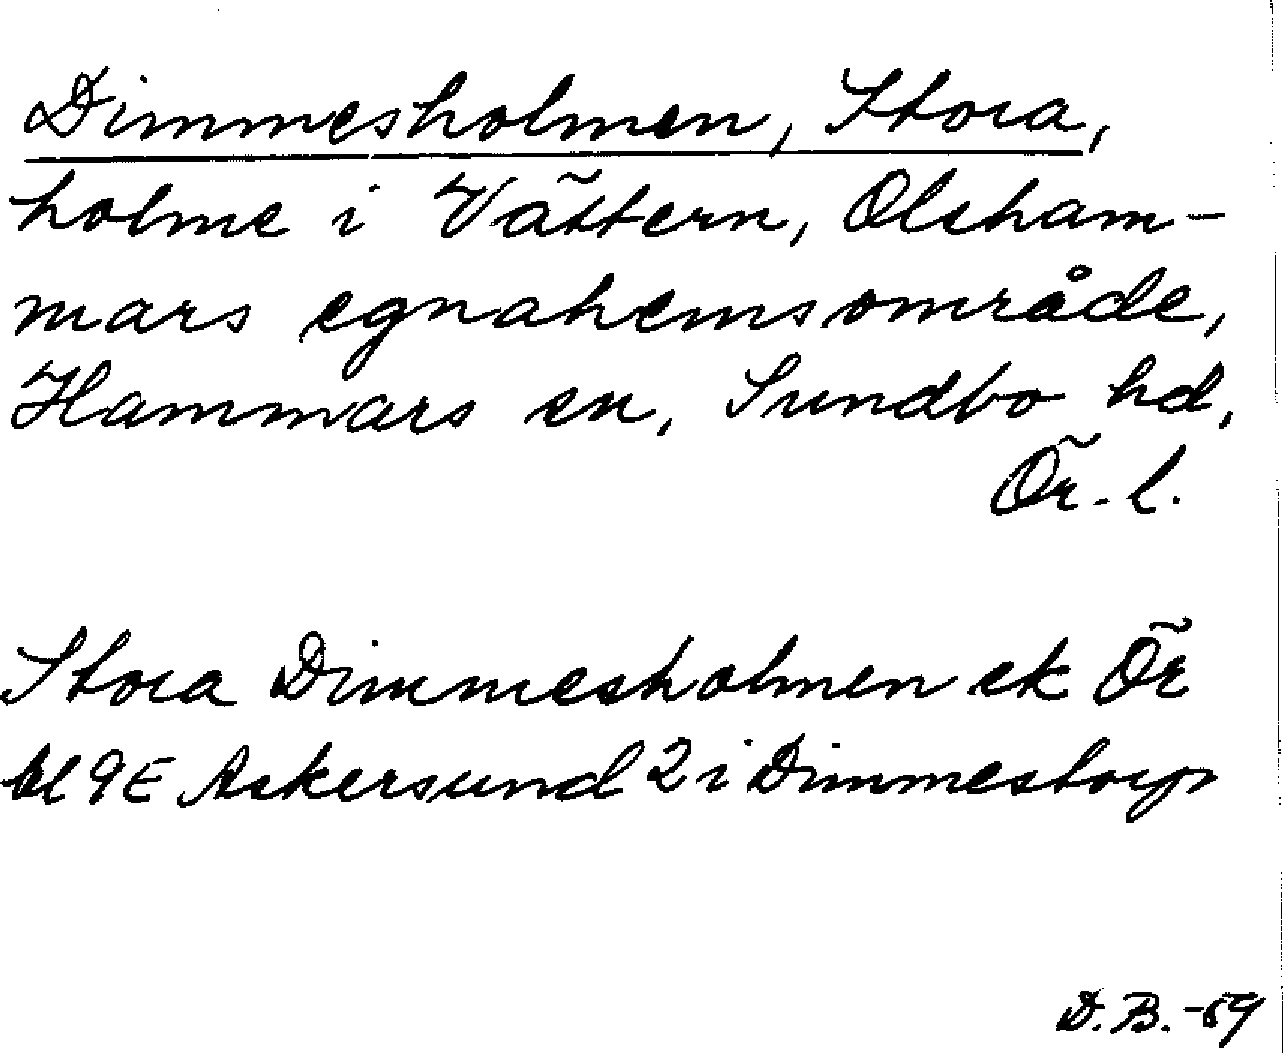 Dimmesholmen, Stora,
holme i Vättern, Olsham-
mars egnahemsområde,
Hammars sn, Sundbo hd,
Ör. l.
Stora Dimmesholmen ek Ör
bl 9E Askersund 2 i Dimmestorp
D. B. -59